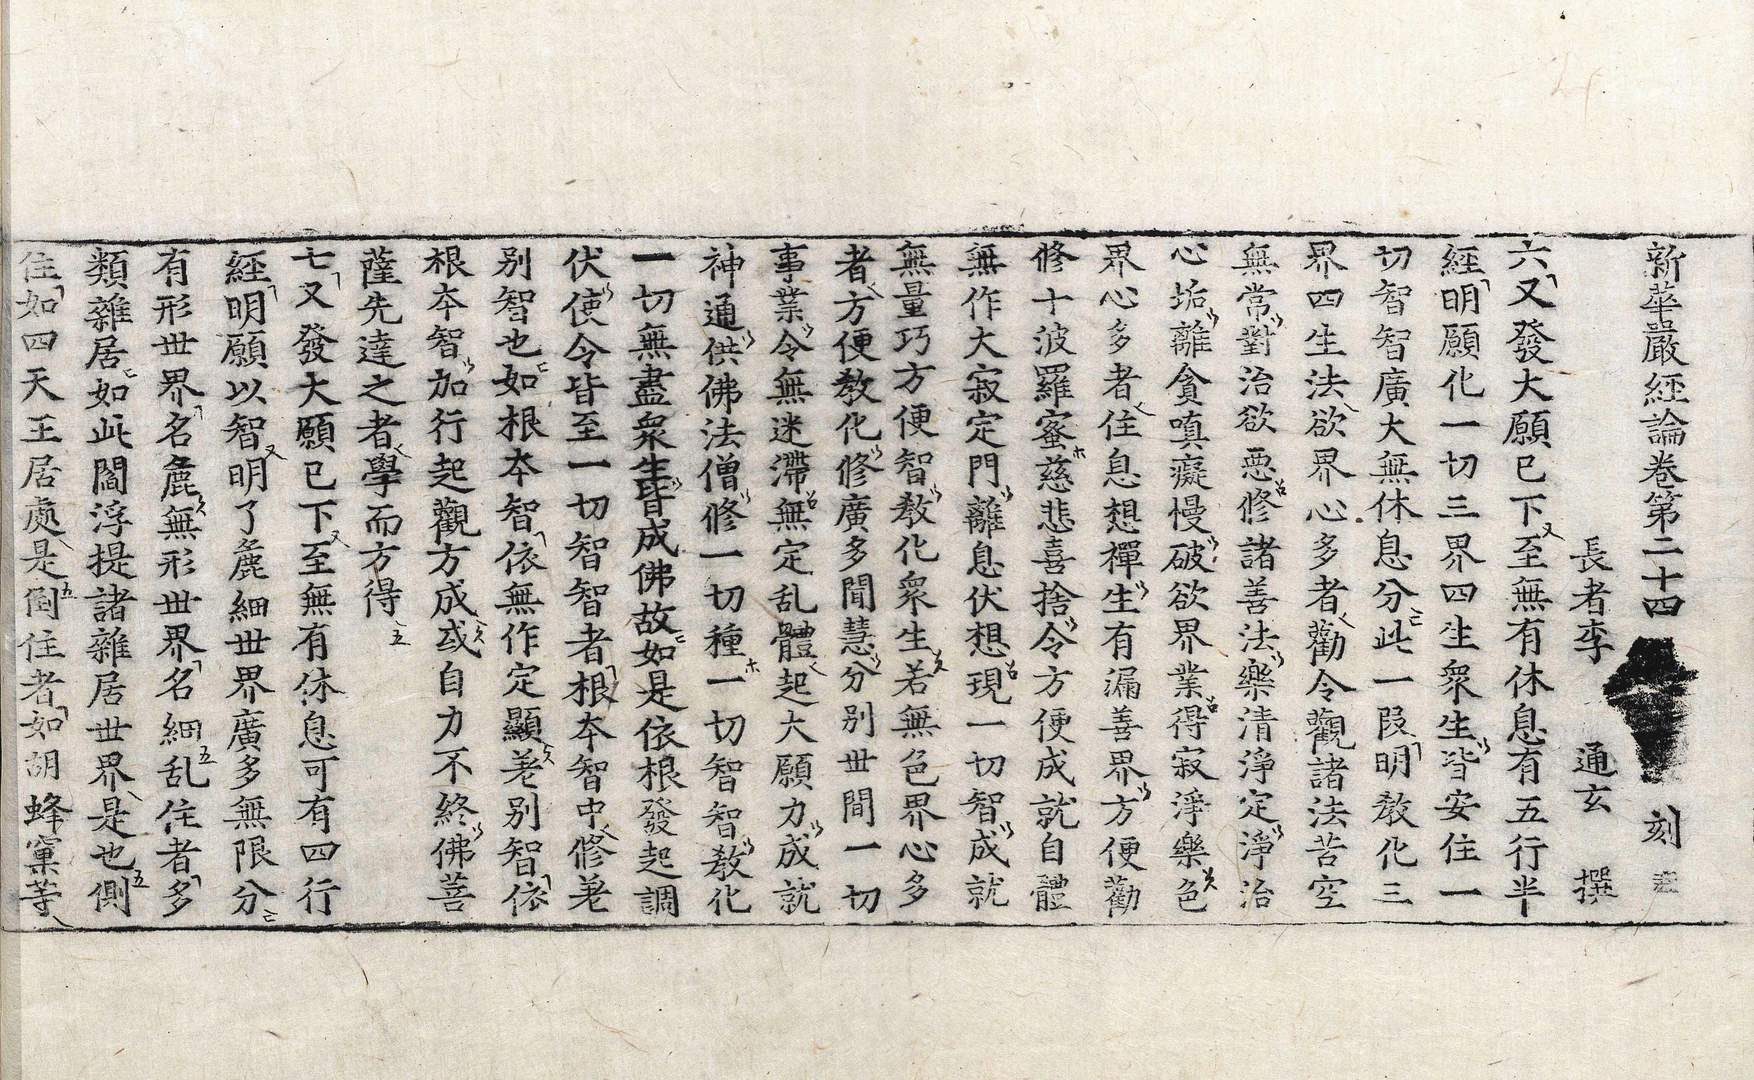 新華嚴經論卷第二十四 刻
長者李 通玄 撰
六又發大願已下至無有休息有五行半
經明願化一切三界四生衆生皆安住一
切智智廣大無休息分此一段明教化三
界四生法欲界心多者勸令觀諸法苦空
無常對治欲惡修諸善法樂清淨定淨治
心垢離貪嗔癡慢破欲界業得寂淨樂色
界心多者住息想禪生有漏善界方便勸
修十波羅蜜慈悲喜捨令方便成就自體
無作大寂定門離息伏想現一切智成就
無量巧方便智教化衆生若無色界心多
者方便教化修廣多聞慧分别世間一切
事業令無迷滯無定乱體起大願力成就
神通供佛法僧修一切種一切智智教化
一切無盡衆生皆成佛故如是依根發起調
伏使令皆至一切智智者根本智中修差
别智也如根本智依無作定顯差别智依
根本智加行起觀方成或自力不終佛菩
薩先達之者學而方得
七又發大願已下至無有休息可有四行
經明願以智明了麁細世界廣多無限分
有形世界名麁無形世界名細乱住者多
類雜居如此閻浮提諸雜居世界是也側
住如四天王居處是倒住者如胡蜂窠等